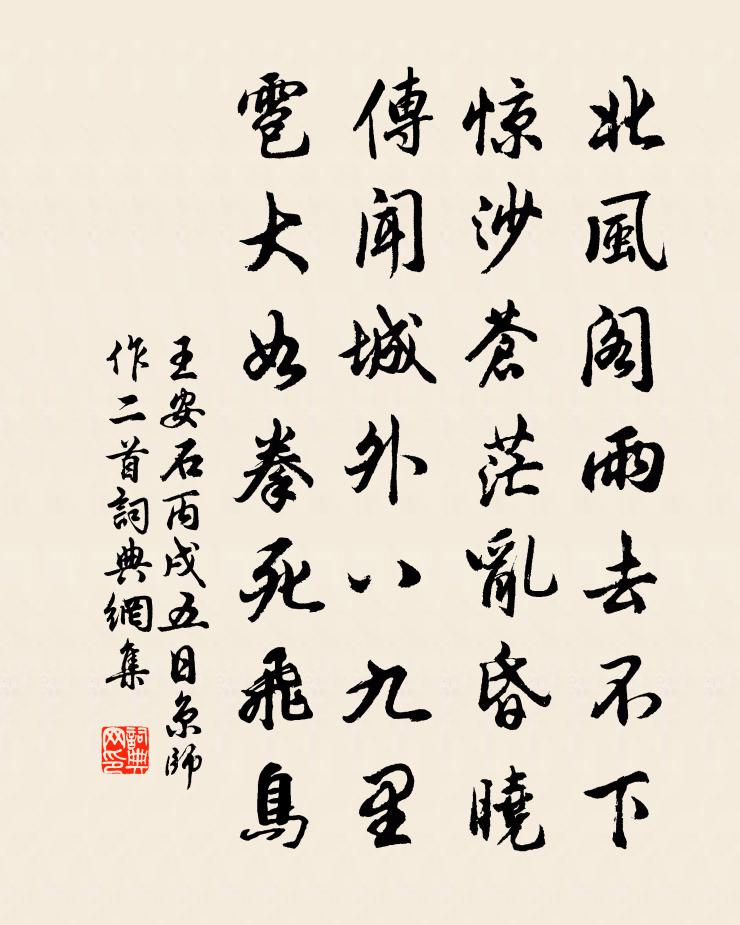 北風閣雨去不下
惊沙蒼茫亂昏曉
傳聞城外八九里
雹大如拳死飛鳥
王安石丙戌五日京師
作二首詞典網集
詞典網印